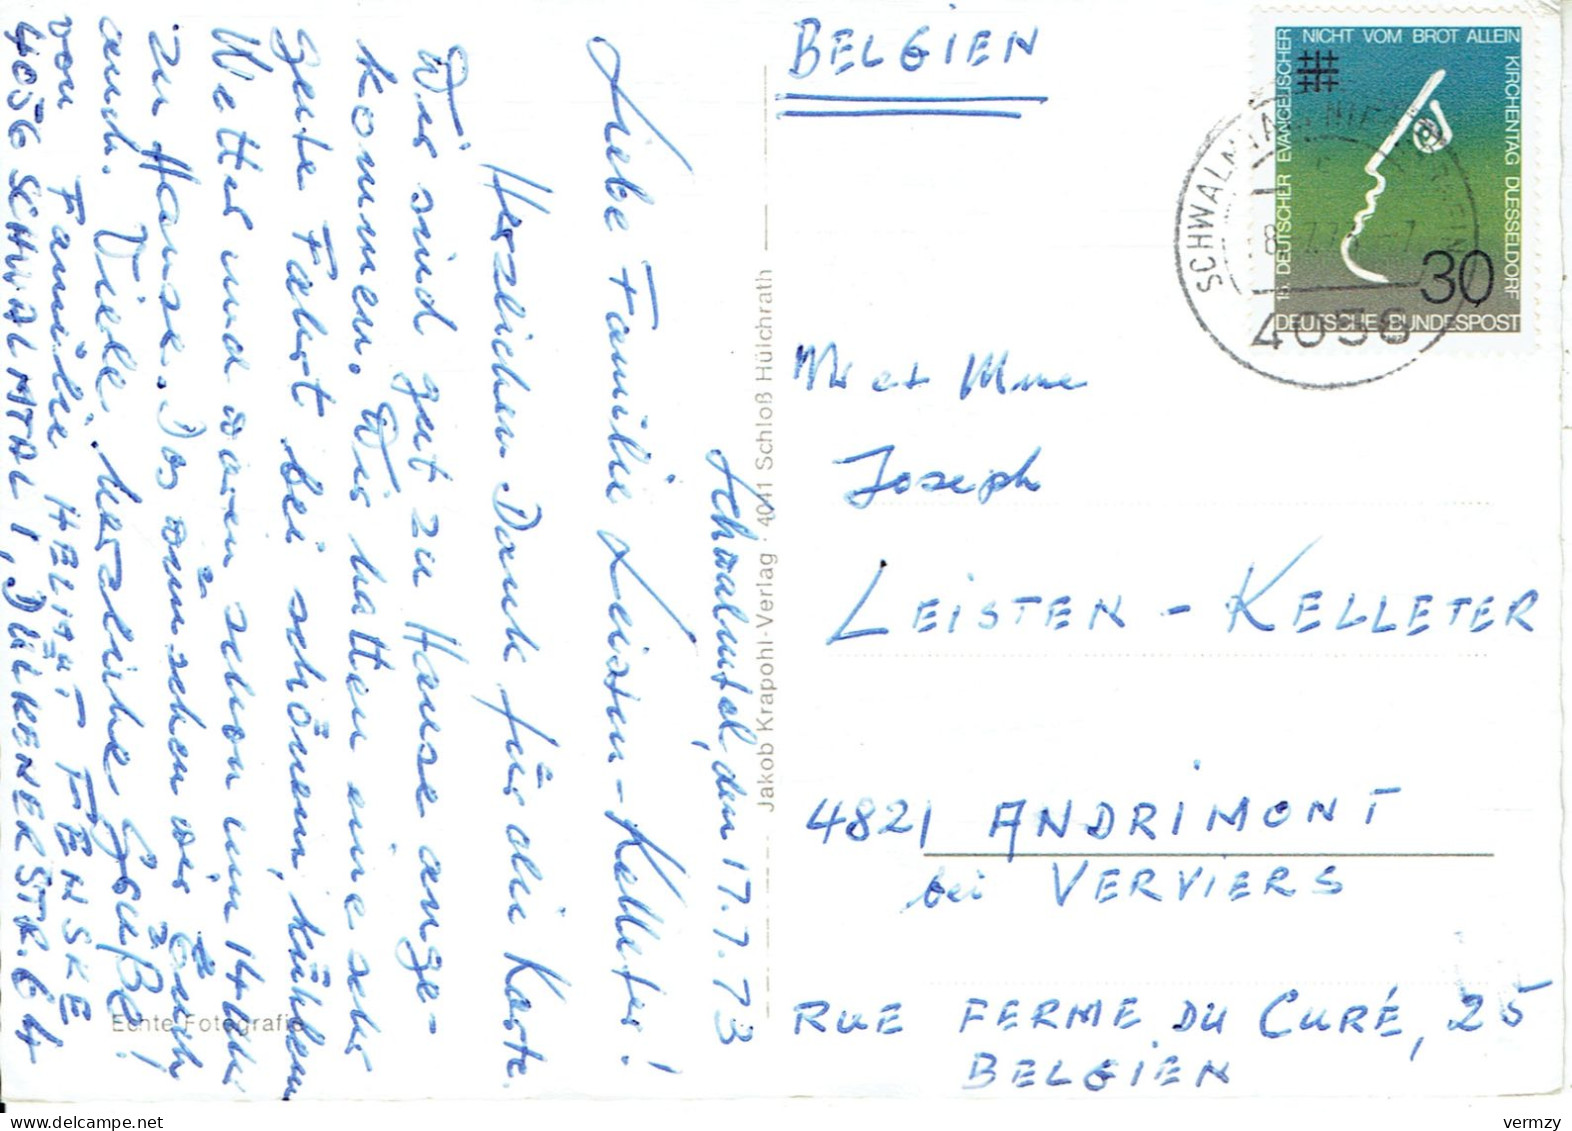 Schwalmtal, den 17.7.73
Liebe Familie Leisten-Kelleter!
Herzlichen Dank für die Karte.
Wir sind gut zu Hause ange-
kommen. Wir hatten eine sehr
gute Fahrt bei schönem, kühlem
Wetter und waren schon um 14 Uhr
zu Hause. Das wünschen wir Euch
auch. Viele herzliche Grüße!
von Familie HELMUT FENSKE
4056 SCHWALMTAL 1, DÜLKENERSTR. 64
Echte Fotografie
Jakob Krapohl-Verlag · 4041 Schloß Hülchrath
BELGIEN
15. DEUTSCHER EVANGELISCHER
NICHT VOM BROT ALLEIN
KIRCHENTAG DUESSELDORF
30
DEUTSCHE BUNDESPOST
SCHWALMTAL
4056
Mr et Mme
Joseph
LEISTEN - KELLETER
4821 ANDRIMONT
bei VERVIERS
RUE FERME DU CURÉ, 25
BELGIEN
www.delcampe.net
vermzy